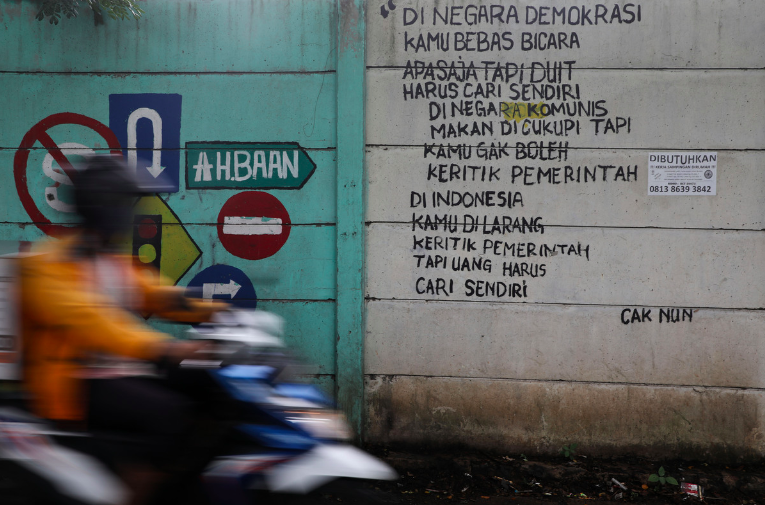 S
#H.BAAN
“DI NEGARA DEMOKRASI
KAMU BEBAS BICARA
APASAJA TAPI DUIT
HARUS CARI SENDIRI
DI NEGARA KOMUNIS
MAKAN DI CUKUPI TAPI
KAMU GAK BOLEH
KERITIK PEMERINTAH
DI INDONESIA
KAMU DI LARANG
KERITIK PEMERINTAH
TAPI UANG HARUS
CARI SENDIRI
CAK NUN
DIBUTUHKAN
0813 8639 3842